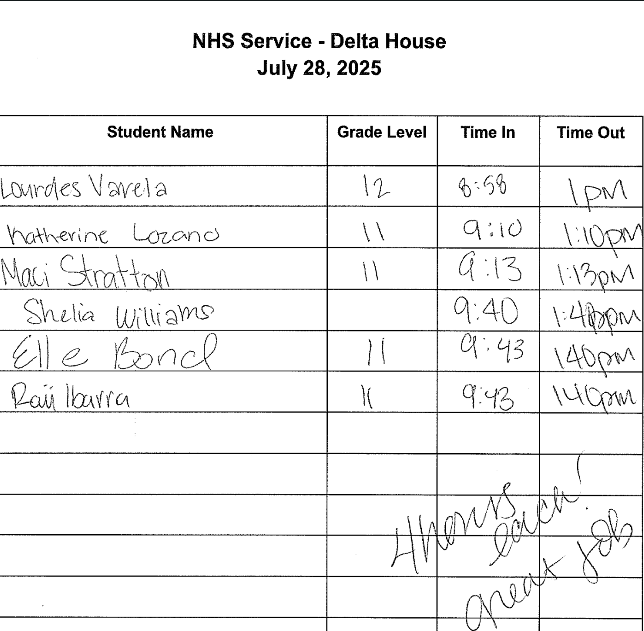 NHS Service - Delta House
July 28, 2025
Student Name Grade Level Time In Time Out
Lourdes Varela 12 8:58 1pm
Katherine Lozano 11 9:10 1:10pm
Maci Stratton 11 9:13 1:13pm
Shelia Williams 9:40 1:40pm
Elle Bond 11 9:43 140pm
Ibarra 11 9:43 140pm
4 hours
each!
great job